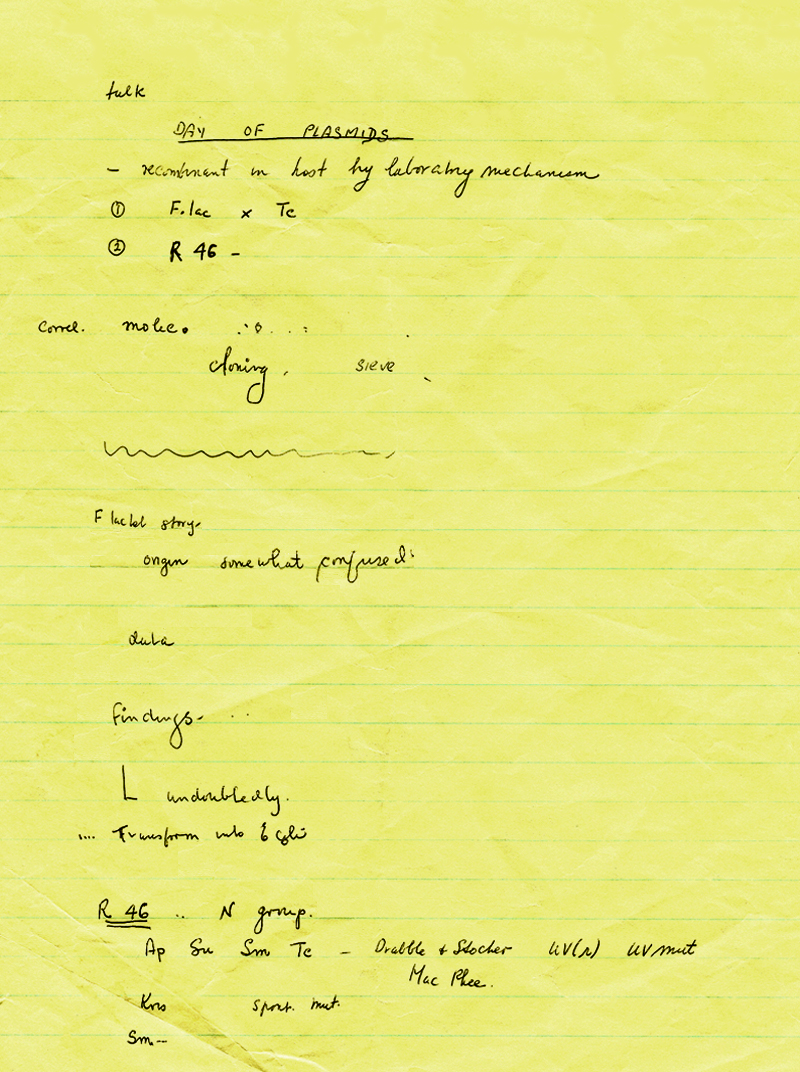 talk
DAY OF PLASMIDS
- recombinant in host by laboratory mechanism
① F.lac x Tc
② R 46 -
Correl. molec.
cloning, sieve
F lac tet story-
origin somewhat confused
data
findings- ..
L undoubtedly.
.... Transform into E coli
R 46 .. N group.
Ap Su Sm Tc - Drabble & Stocker UV(r) UV mut
Mac Phee.
spont. mut.
Sm--